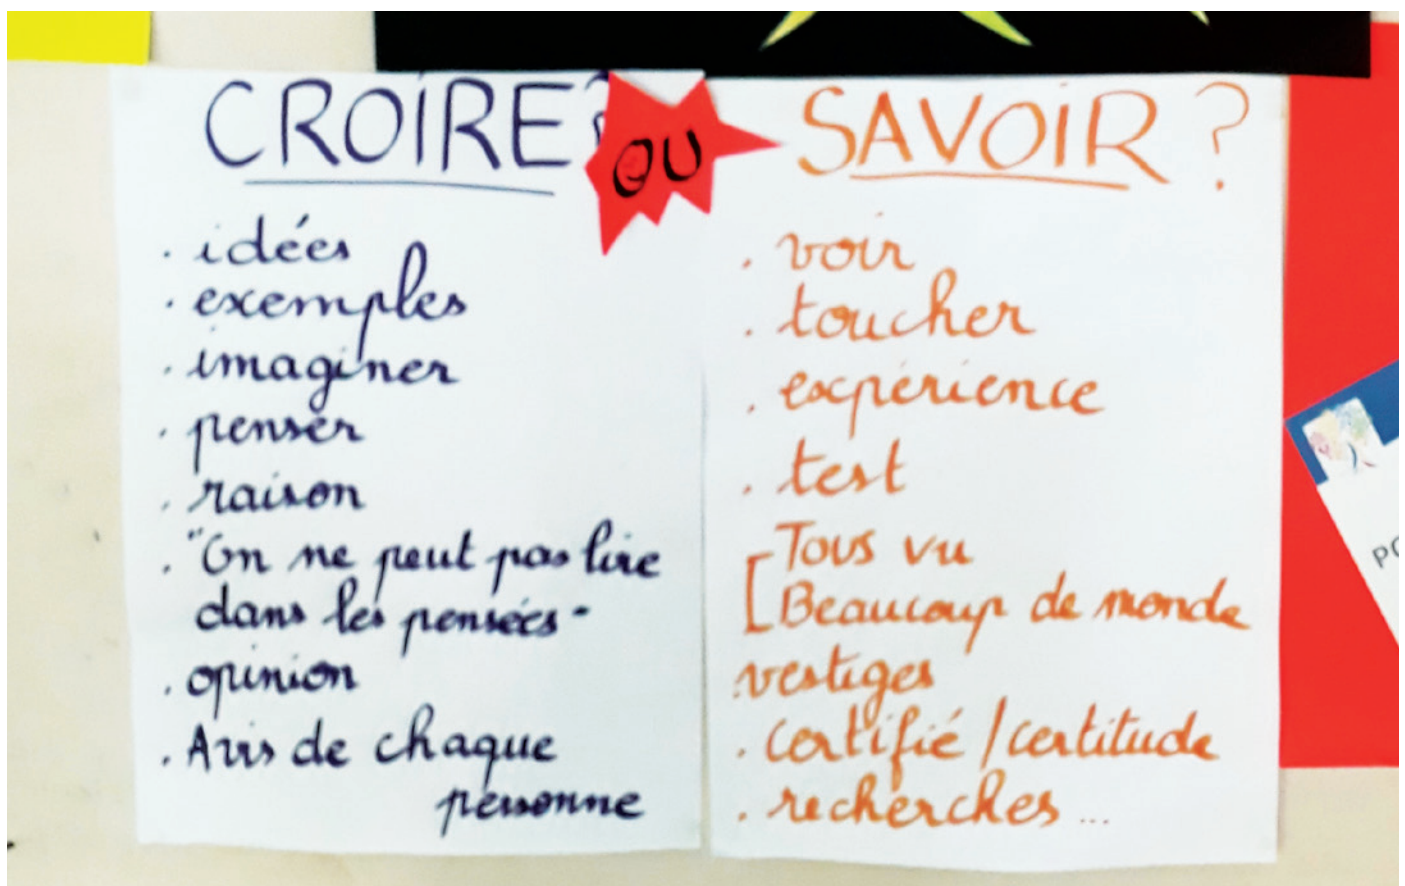 CROIRE ?
OU
SAVOIR ?
. idées
. exemples
. imaginer
. penser
. raison
. "On ne peut pas lire
dans les pensées"
. opinion
. Avis de chaque
personne
. voir
. toucher
. expérience
. test
[ Tous vu
Beaucoup de monde
. vestiges
. certifié / certitude
. recherches ...